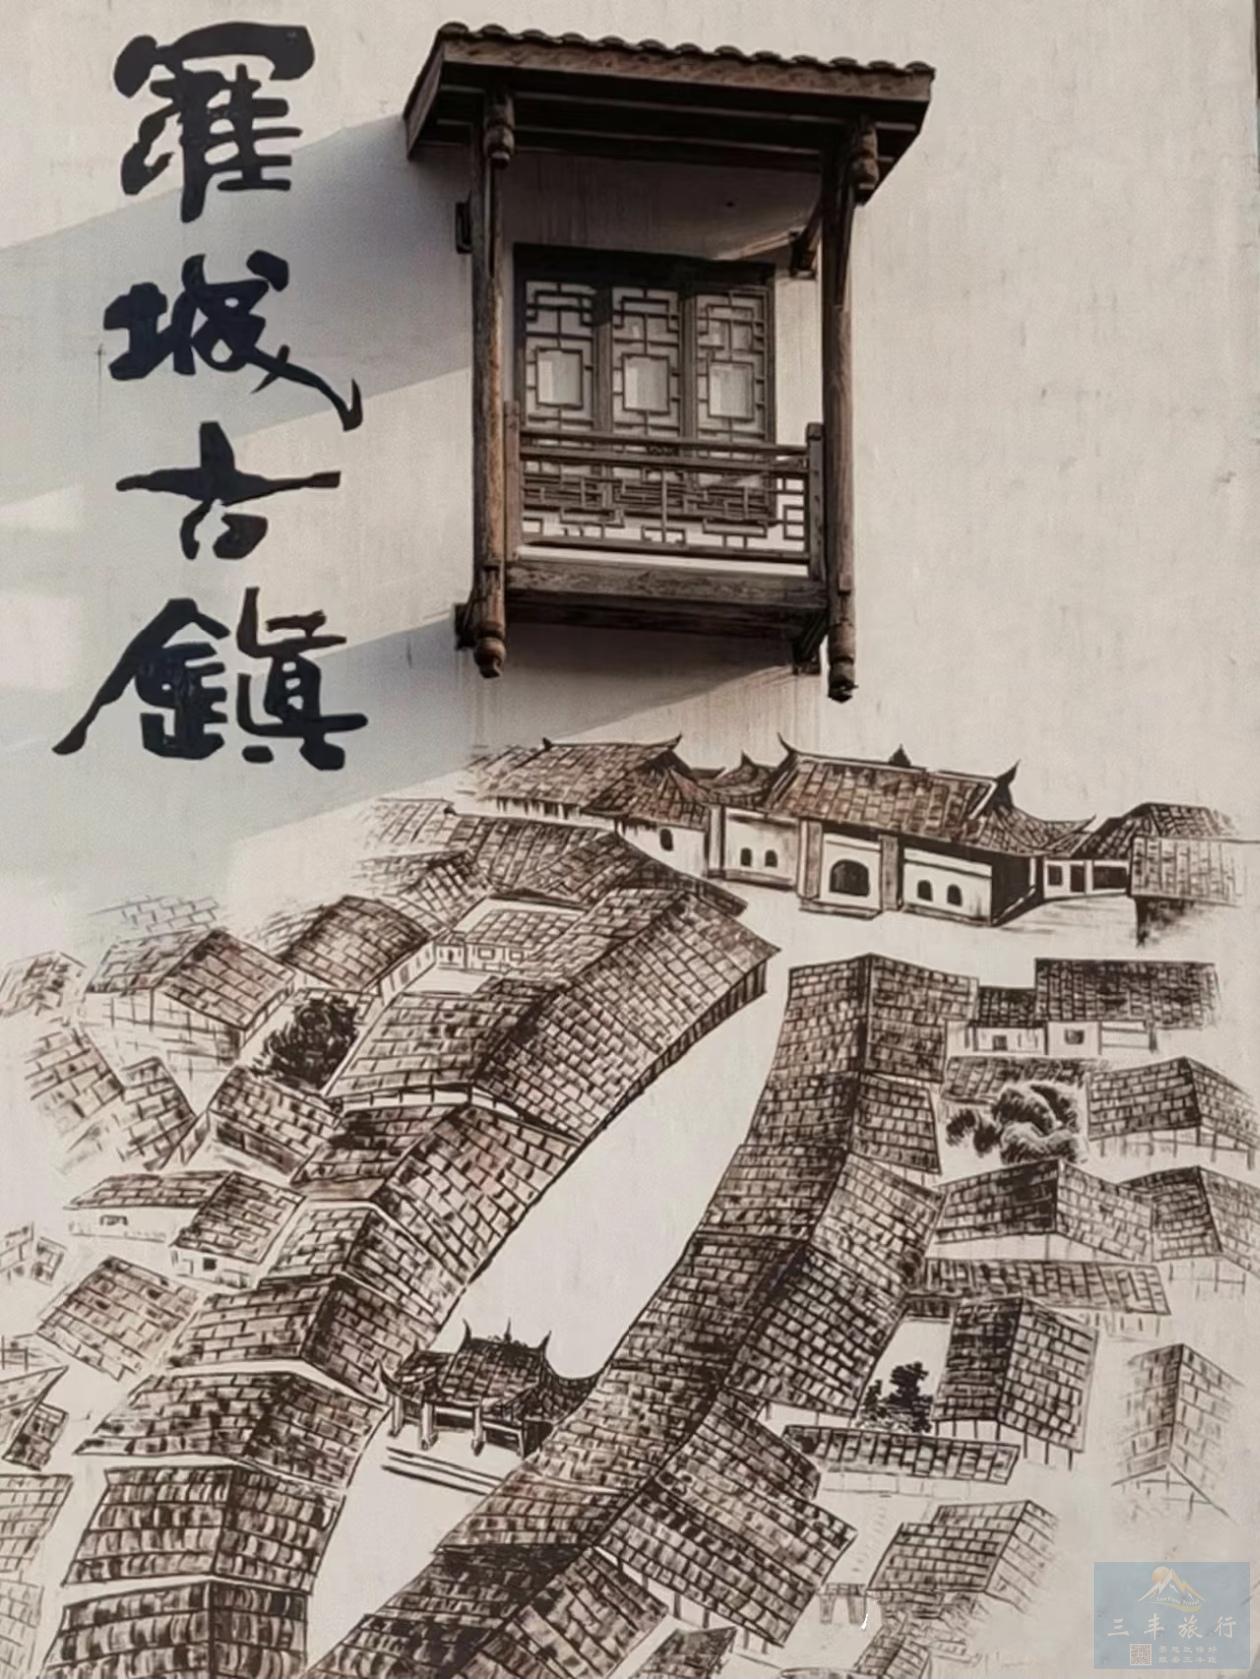 羅城古鎮
三丰旅行